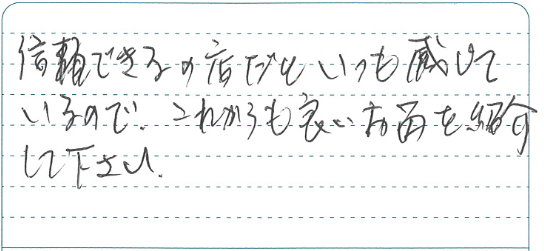 信頼できるお店だといつも感じて
いるので、これからも良いお酒を紹介
して下さい。